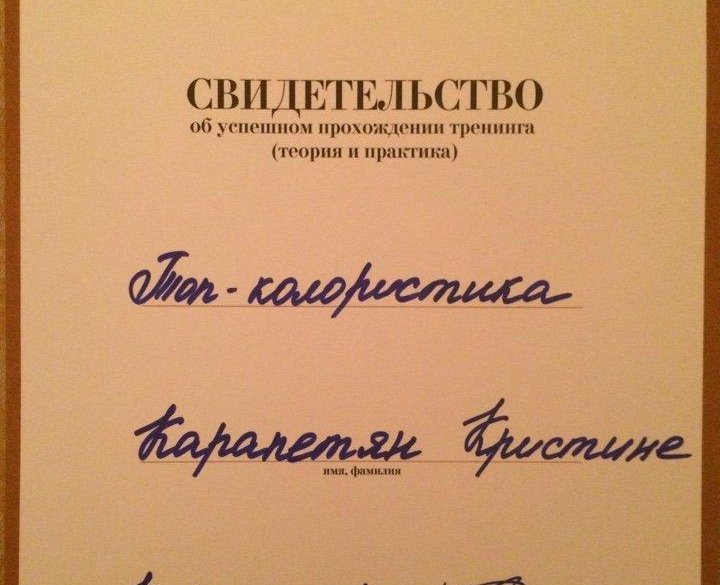 СВИДЕТЕЛЬСТВО
об успешном прохождении тренинга
(теория и практика)
Топ-колористика
Карапетян Кристине
имя, фамилия